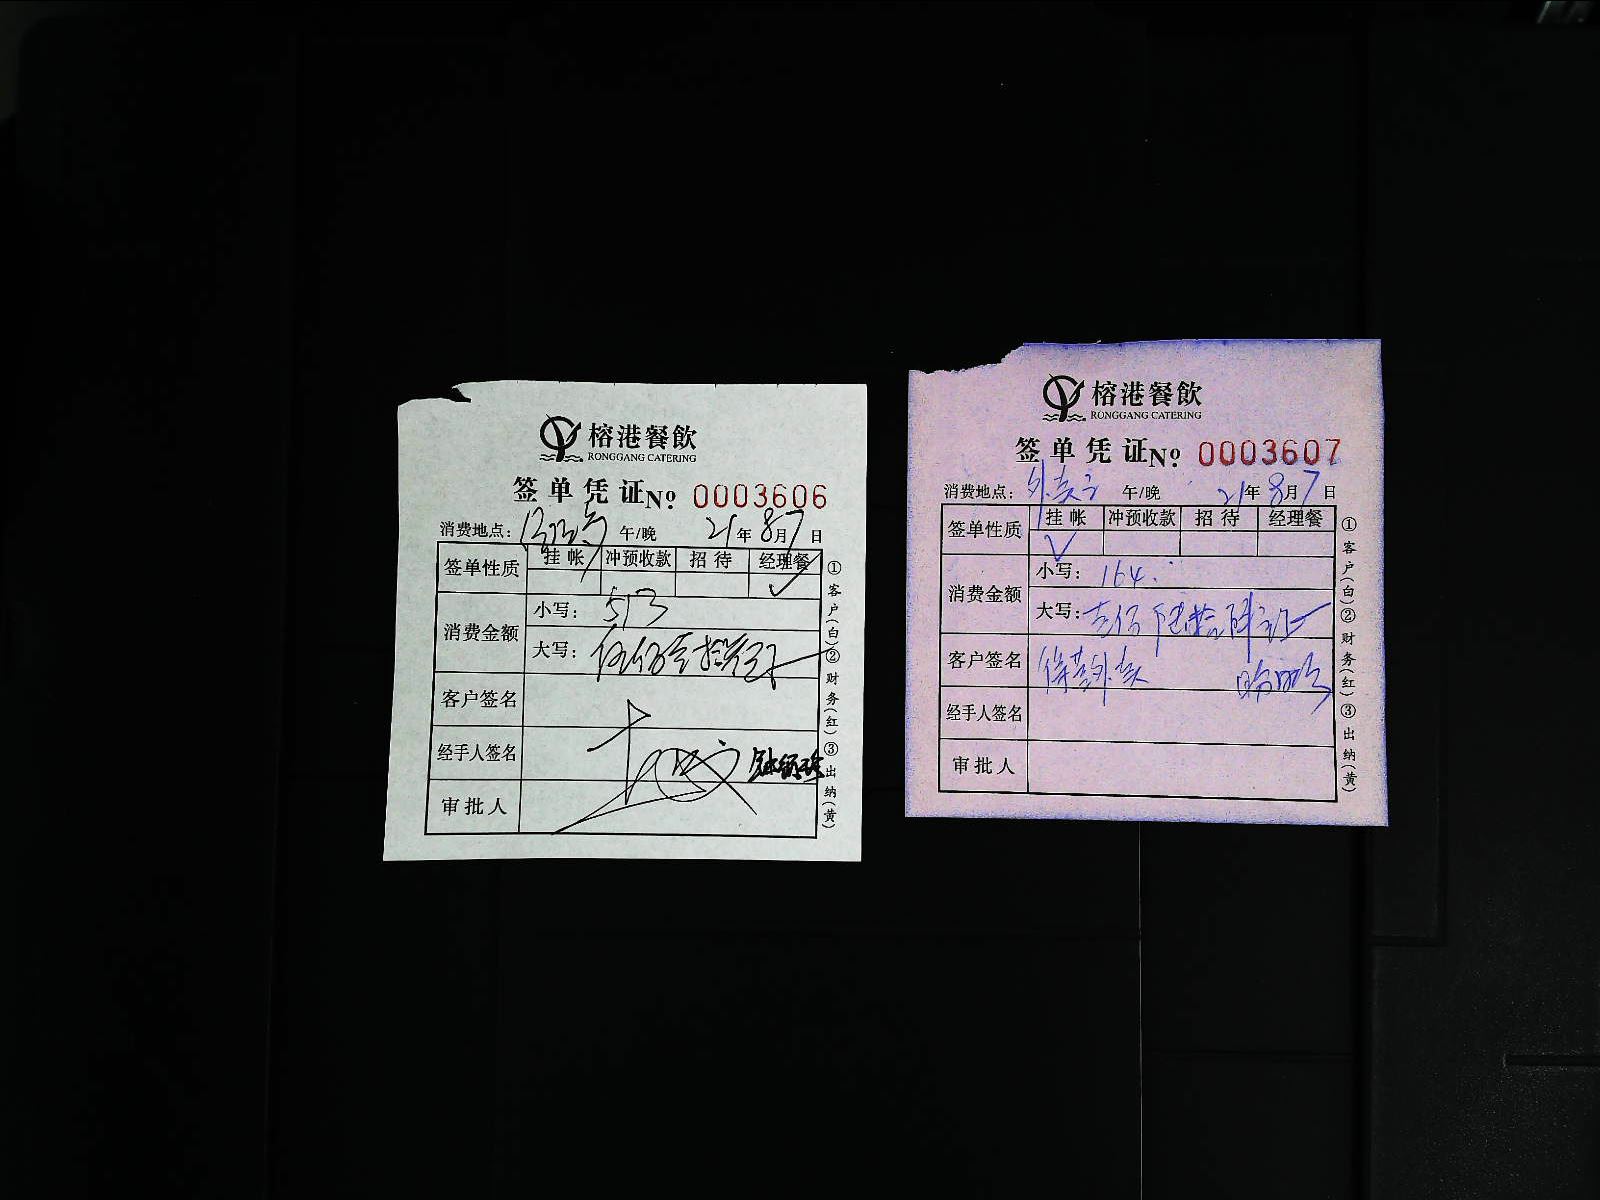 榕港餐飲
RONGGANG CATERING
签单凭证 Nº 0003606
消费地点： 午/晚 21年8月7日
签单性质 挂帐 冲预收款 招待 经理餐
✓
消费金额 小写： 513
大写： 伍佰壹拾叁元
客户签名
经手人签名
审批人
①客户(白)②财务(红)③出纳(黄)
榕港餐飲
RONGGANG CATERING
签单凭证 Nº 0003607
消费地点： 外卖 午/晚 21年8月7日
签单性质 挂帐 冲预收款 招待 经理餐
✓
消费金额 小写： 164.
大写： 壹佰陆拾肆元正
客户签名 外卖
经手人签名
审批人
①客户(白)②财务(红)③出纳(黄)